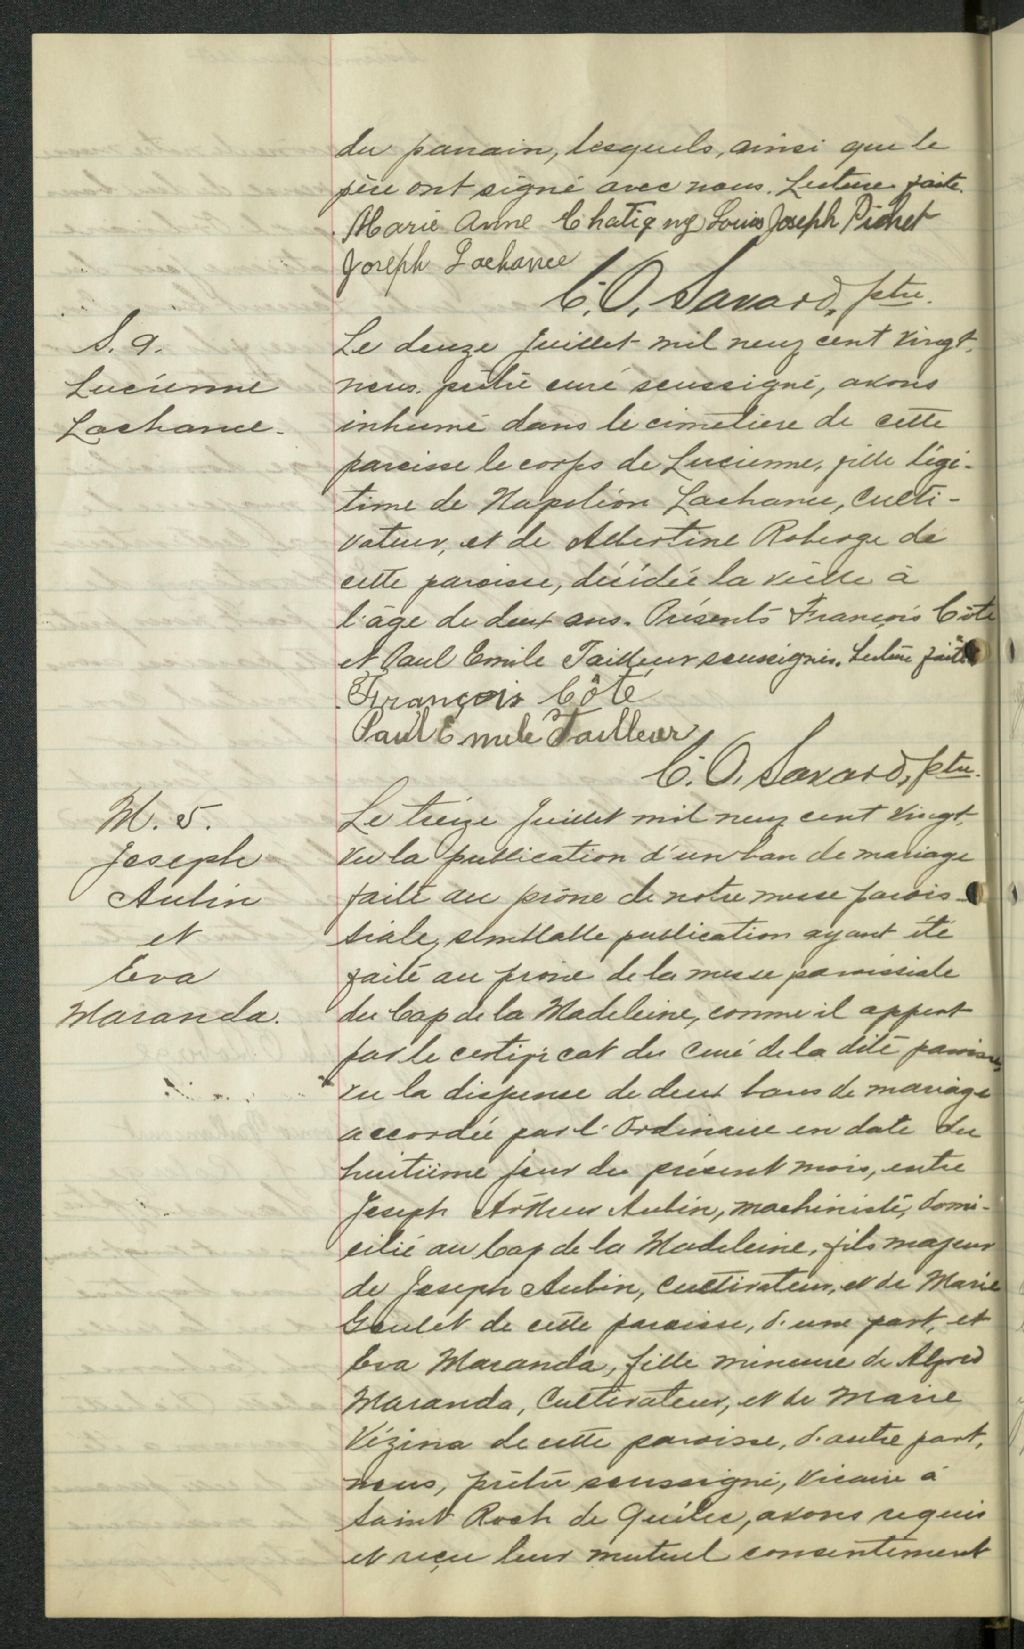 du parrain, lesquels, ainsi que le
père ont signé avec nous. Lecture faite.
Marie Anne Chatigny Louis Joseph Pichet
Joseph Lachance
C. O. Savard, ptre.
S. 9.
Lucienne
Lachance.
Le douze Juillet mil neuf cent vingt,
nous prêtre curé soussigné, avons
inhumé dans le cimetière de cette
paroisse le corps de Lucienne, fille légi-
time de Napoléon Lachance, Culti-
vateur, et de Albertine Roberge de
cette paroisse, décédée la veille à
l'âge de deux ans. Présents François Côté
et Paul Emile Tailleur soussignés. Lecture faite
François Côté
Paul Emile Tailleur
C. O. Savard, ptre.
M. 5.
Joseph
Aubin
et
Eva
Maranda.
Le treize Juillet mil neuf cent vingt,
vu la publication d'un ban de mariage
faite au prône de notre messe parois-
siale, semblable publication ayant été
faite au prône de la messe paroissiale
du Cap de la Madeleine, comme il appert
par le certificat du Curé de la dite paroisse,
vu la dispense de deux bans de mariage
accordée par l'Ordinaire en date du
huitième jour du présent mois, entre
Joseph Arthur Aubin, machiniste, domi-
cilié au Cap de la Madeleine, fils majeur
de Joseph Aubin, Cultivateur, et de Marie
Goulet de cette paroisse, d'une part, et
Eva Maranda, fille mineure de Alfred
Maranda, Cultivateur, et de Marie
Vézina de cette paroisse, d'autre part,
nous, prêtre soussigné, Vicaire à
Saint Roch de Québec, avons requis
et reçu leur mutuel consentement